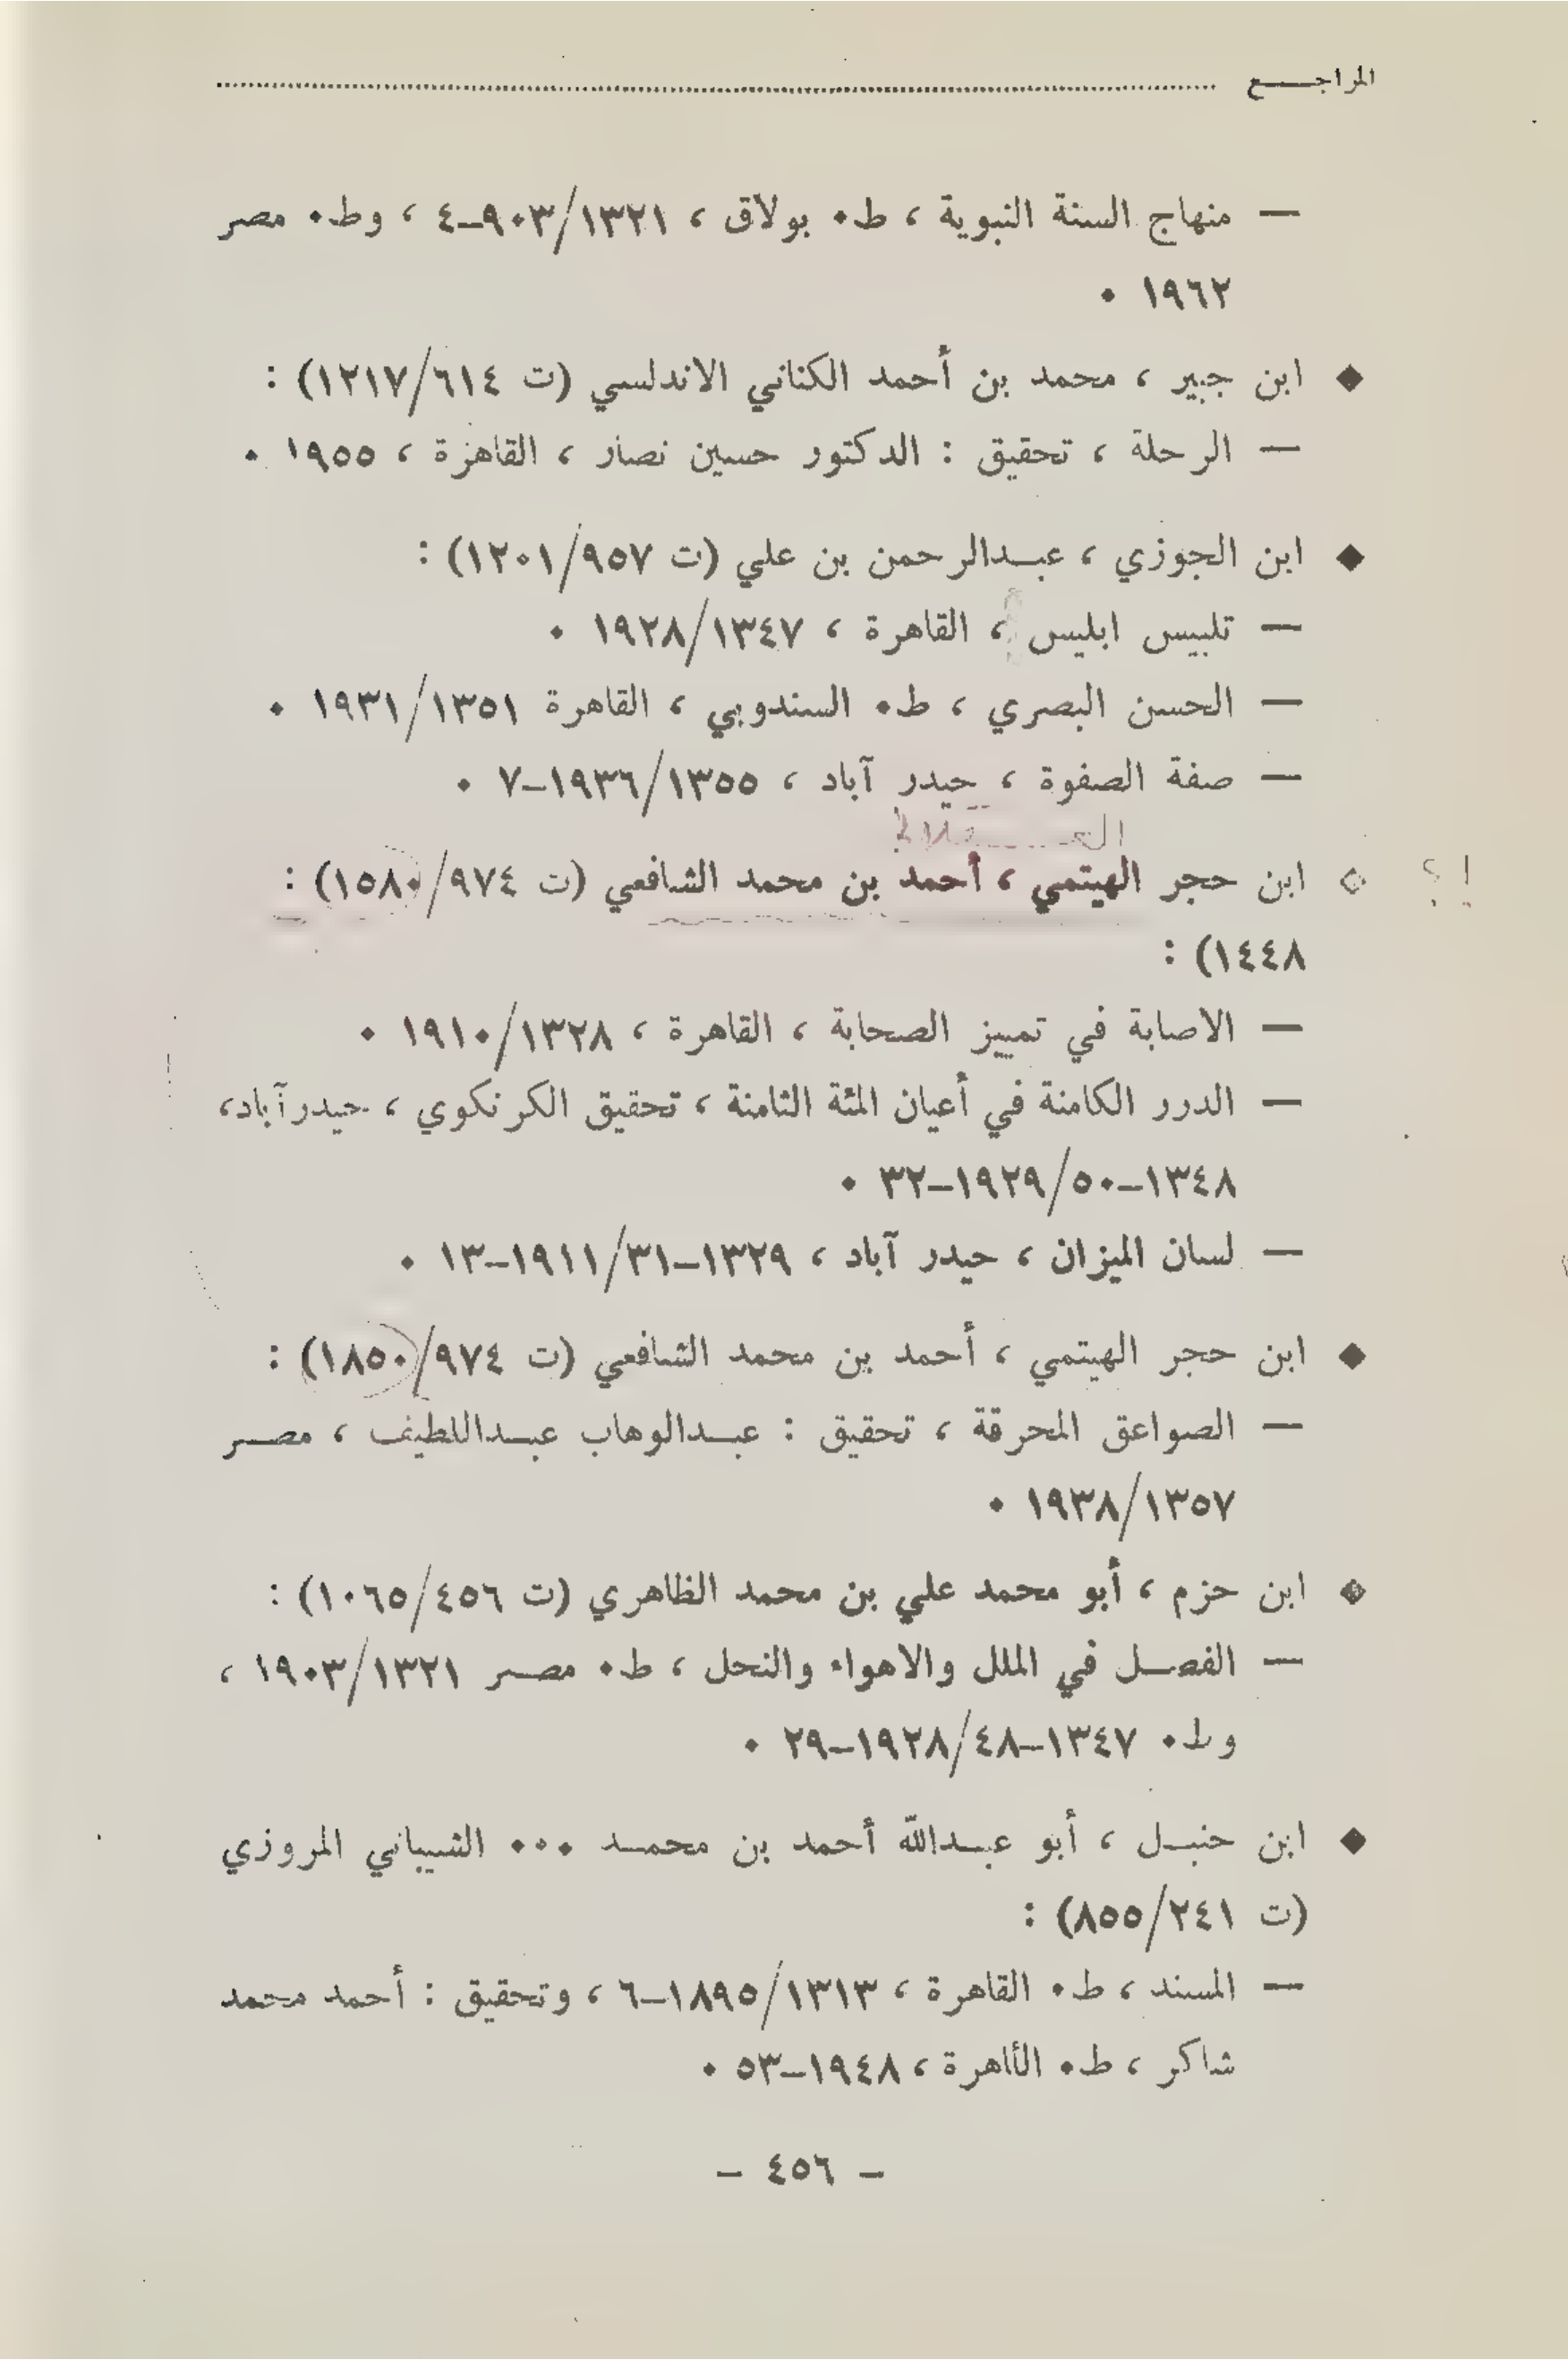 المراجـــــع
— منهاج السنة النبوية ، ط٠ بولاق ، ١٣٢١/٩٠٣–٤ ، وط٠ مصر
١٩٦٢ ٠
◆ ابن جبير ، محمد بن أحمد الكناني الاندلسي (ت ٦١٤/١٢١٧) :
— الرحلة ، تحقيق : الدكتور حسين نصار ، القاهرة ، ١٩٥٥ ٠
◆ ابن الجوزي ، عبـدالرحمن بن علي (ت ٩٥٧/١٢٠١) :
— تلبيس ابليس ، القاهرة ، ١٣٤٧/١٩٢٨ ٠
— الحسن البصري ، ط٠ السندوبي ، القاهرة ١٣٥١/١٩٣١ ٠
— صفة الصفوة ، حيدر آباد ، ١٣٥٥/١٩٣٦–٧ ٠
العـــــقلاني
◆ ابن حجر الهيتمي ، أحمد بن محمد الشافعي (ت ٩٧٤/١٥٨٠) :
! ؟
١٤٤٨) :
— الاصابة في تمييز الصحابة ، القاهرة ، ١٣٢٨/١٩١٠ ٠
— الدرر الكامنة في أعيان المئة الثامنة ، تحقيق الكرنكوي ، حيدرآباد،
١٣٤٨–٥٠/١٩٢٩–٣٢ ٠
— لسان الميزان ، حيدر آباد ، ١٣٢٩–٣١/١٩١١–١٣ ٠
◆ ابن حجر الهيتمي ، أحمد بن محمد الشافعي (ت ٩٧٤/١٨٥٠) :
— الصواعق المحرقة ، تحقيق : عبـدالوهاب عبـداللطيف ، مصـر
١٣٥٧/١٩٣٨ ٠
◆ ابن حزم ، أبو محمد علي بن محمد الظاهري (ت ٤٥٦/١٠٦٥) :
— الفصـل في الملل والاهواء والنحل ، ط٠ مصـر ١٣٢١/١٩٠٣ ،
وط٠ ١٣٤٧–٤٨/١٩٢٨–٢٩ ٠
◆ ابن حنبـل ، أبو عبـدالله أحمد بن محمـد ٠٠٠ الشيباني المروزي
(ت ٢٤١/٨٥٥) :
— المسند ، ط٠ القاهرة ، ١٣١٣/١٨٩٥–٦ ، وتحقيق : أحمد محمد
شاكر ، ط٠ الأاهرة ، ١٩٤٨–٥٣ ٠
– ٤٥٦ –